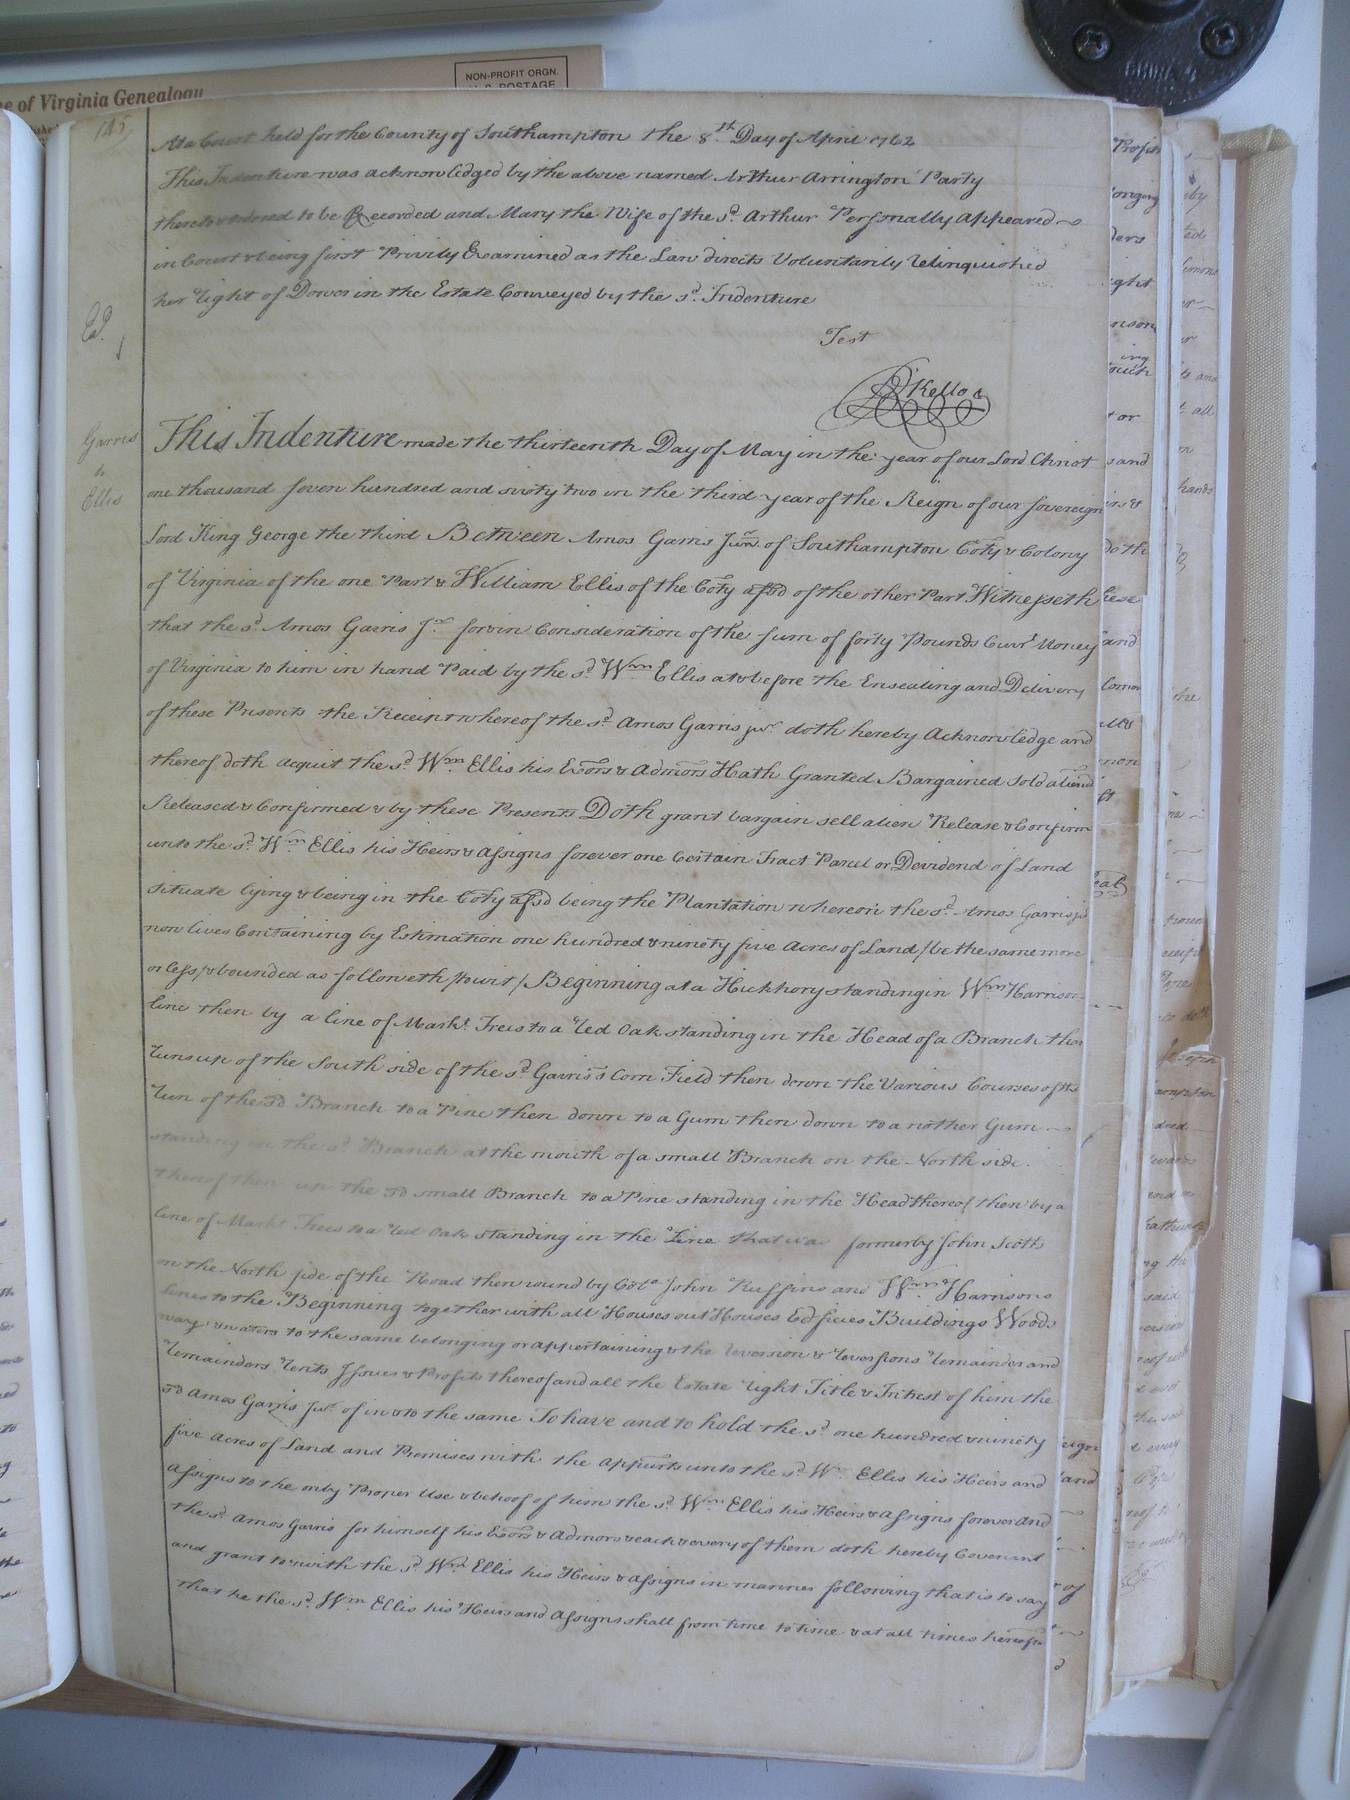 e of Virginia Genealogy
NON-PROFIT ORGN.
U.S. POSTAGE
145
At a Court held for the County of Southampton the 8th. Day of April 1762
This Indenture was acknowledged by the above named Arthur Arrington Party
thereto & ordered to be Recorded and Mary the Wife of the sd. Arthur Personally Appeared
in Court & being first Privily Examined as the Law directs Voluntarily relinquished
her right of Dower in the Estate Conveyed by the sd. Indenture
Exd.
Test
R Kello
Garris
to
Ellis
This Indenture made the thirteenth Day of May in the year of our Lord Christ
one thousand seven hundred and sixty two in the third year of the Reign of our Sovereign
Lord King George the third Between Amos Garris Junr. of Southampton Coty & Colony
of Virginia of the one Part & William Ellis of the Coty afsd of the other Part Witnesseth
that the sd. Amos Garris Jr. for & in Consideration of the sum of forty Pounds Curt. Money
of Virginia to him in hand Paid by the sd. Wm Ellis at & before the Ensealing and Delivery
of these Presents the Receipt whereof the sd. Amos Garris jur. doth hereby Acknowledge and
thereof doth acquit the sd. Wm. Ellis his Exors & Admors Hath Granted Bargained Sold aliened
Released & Confirmed & by these Presents Doth grant bargain sell alien Release & Confirm
unto the sd. Wm. Ellis his Heirs & Assigns forever one Certain Tract Parcel or Devidend of Land
situate lying & being in the Coty afsd being the Plantation whereon the sd. Amos Garris jr
now lives Containing by Estimation one hundred & ninety five Acres of Land / be the same more
or less / & bounded as followeth / towit / Beginning at a Hickhory standing in Wm. Harrisons
line then by a line of Markt. Trees to a red Oak standing in the Head of a Branch that
runs up of the South side of the sd. Garris's Corn Field then down the Various Courses of the
run of the sd Branch to a Pine then down to a Gum then down to a nother Gum
standing in the sd. Branch at the mouth of a small Branch on the North side
thereof then up the sd small Branch to a Pine standing in the Head thereof then by a
line of Markt Trees to a red Oak standing in the Line that was formerly John Scotts
on the North side of the Road then round by Colo. John Ruffins and Wm. Harrisons
lines to the Beginning together with all Houses out Houses Edifices Buildings Woods
ways & waters to the same belonging or appertaining & the reversion & reversions remainder and
remainders rents Issues & Profits thereof and all the Estate right Title & Intrest of him the
sd Amos Garris Jur. of in & to the same To have and to hold the sd. one hundred & ninety
five Acres of Land and Premises with the appurts unto the sd. W. Ellis his Heirs and
Assigns to the only Proper Use & behoof of him the sd. Wm Ellis his Heirs & Assigns forever And
the sd. Amos Garris for himself his Exors & Admors & each & every of them doth hereby Covenant
and grant to & with the sd. Wm. Ellis his Heirs & assigns in manner following that is to say
that he the sd. Wm. Ellis his Heirs and Assigns shall from time to time & at all times hereafter